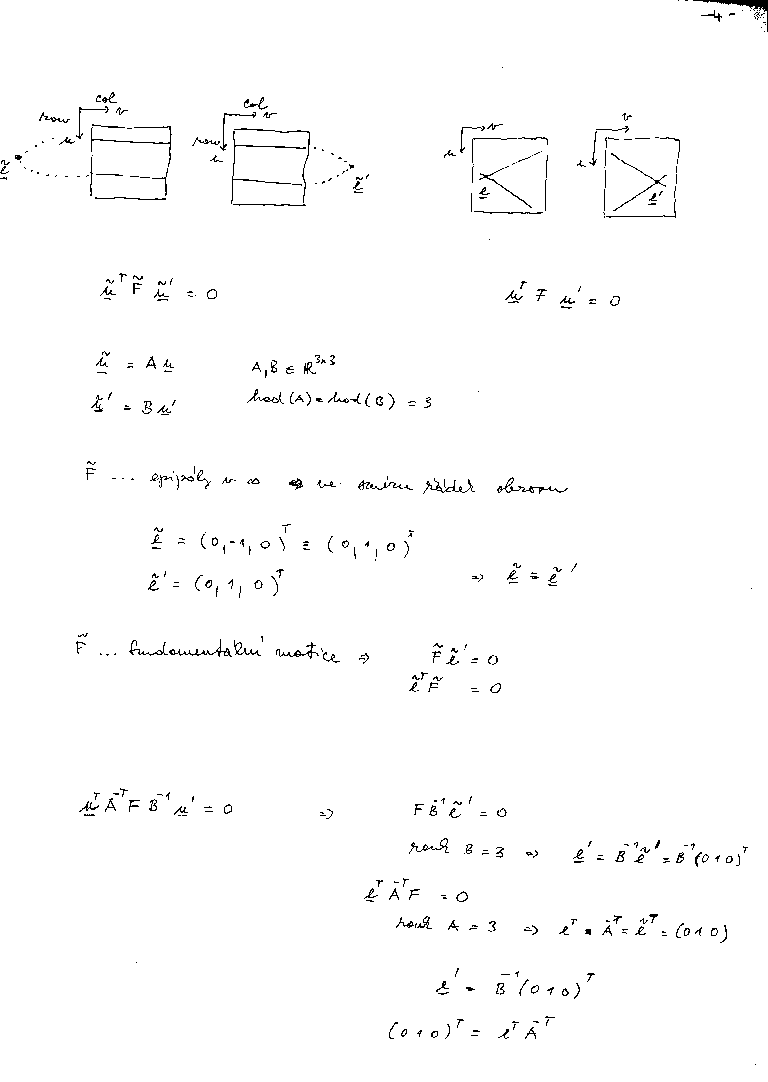 -4-
col
row v
u
ẽ
col
row v
u
ẽ'
v
u
e
v
u
e'
ũᵀ F̃ ũ' = 0
uᵀ F u' = 0
ũ = A u   A,B ∈ ℝ³ˣ³
ũ' = B u'   hod(A) = hod(B) = 3
F̃ ... epipóly v ∞ ⇒ ve směru řádek obrazu
ẽ = (0,-1,0)ᵀ ≅ (0,1,0)ᵀ
ẽ' = (0,1,0)ᵀ   ⇒ ẽ = ẽ'
F̃ ... fundamentální matice ⇒ F̃ ẽ' = 0
ẽᵀ F̃ = 0
uᵀ A⁻ᵀ F B⁻¹ u' = 0   ⇒   F B⁻¹ ẽ' = 0
rank B = 3 ⇒ e' = B⁻¹ ẽ' = B⁻¹ (0 1 0)ᵀ
eᵀ A⁻ᵀ F = 0
rank A = 3 ⇒ eᵀ = A⁻ᵀ = ẽᵀ = (0 1 0)
e' = B⁻¹ (0 1 0)ᵀ
(0 1 0)ᵀ = eᵀ A⁻ᵀ